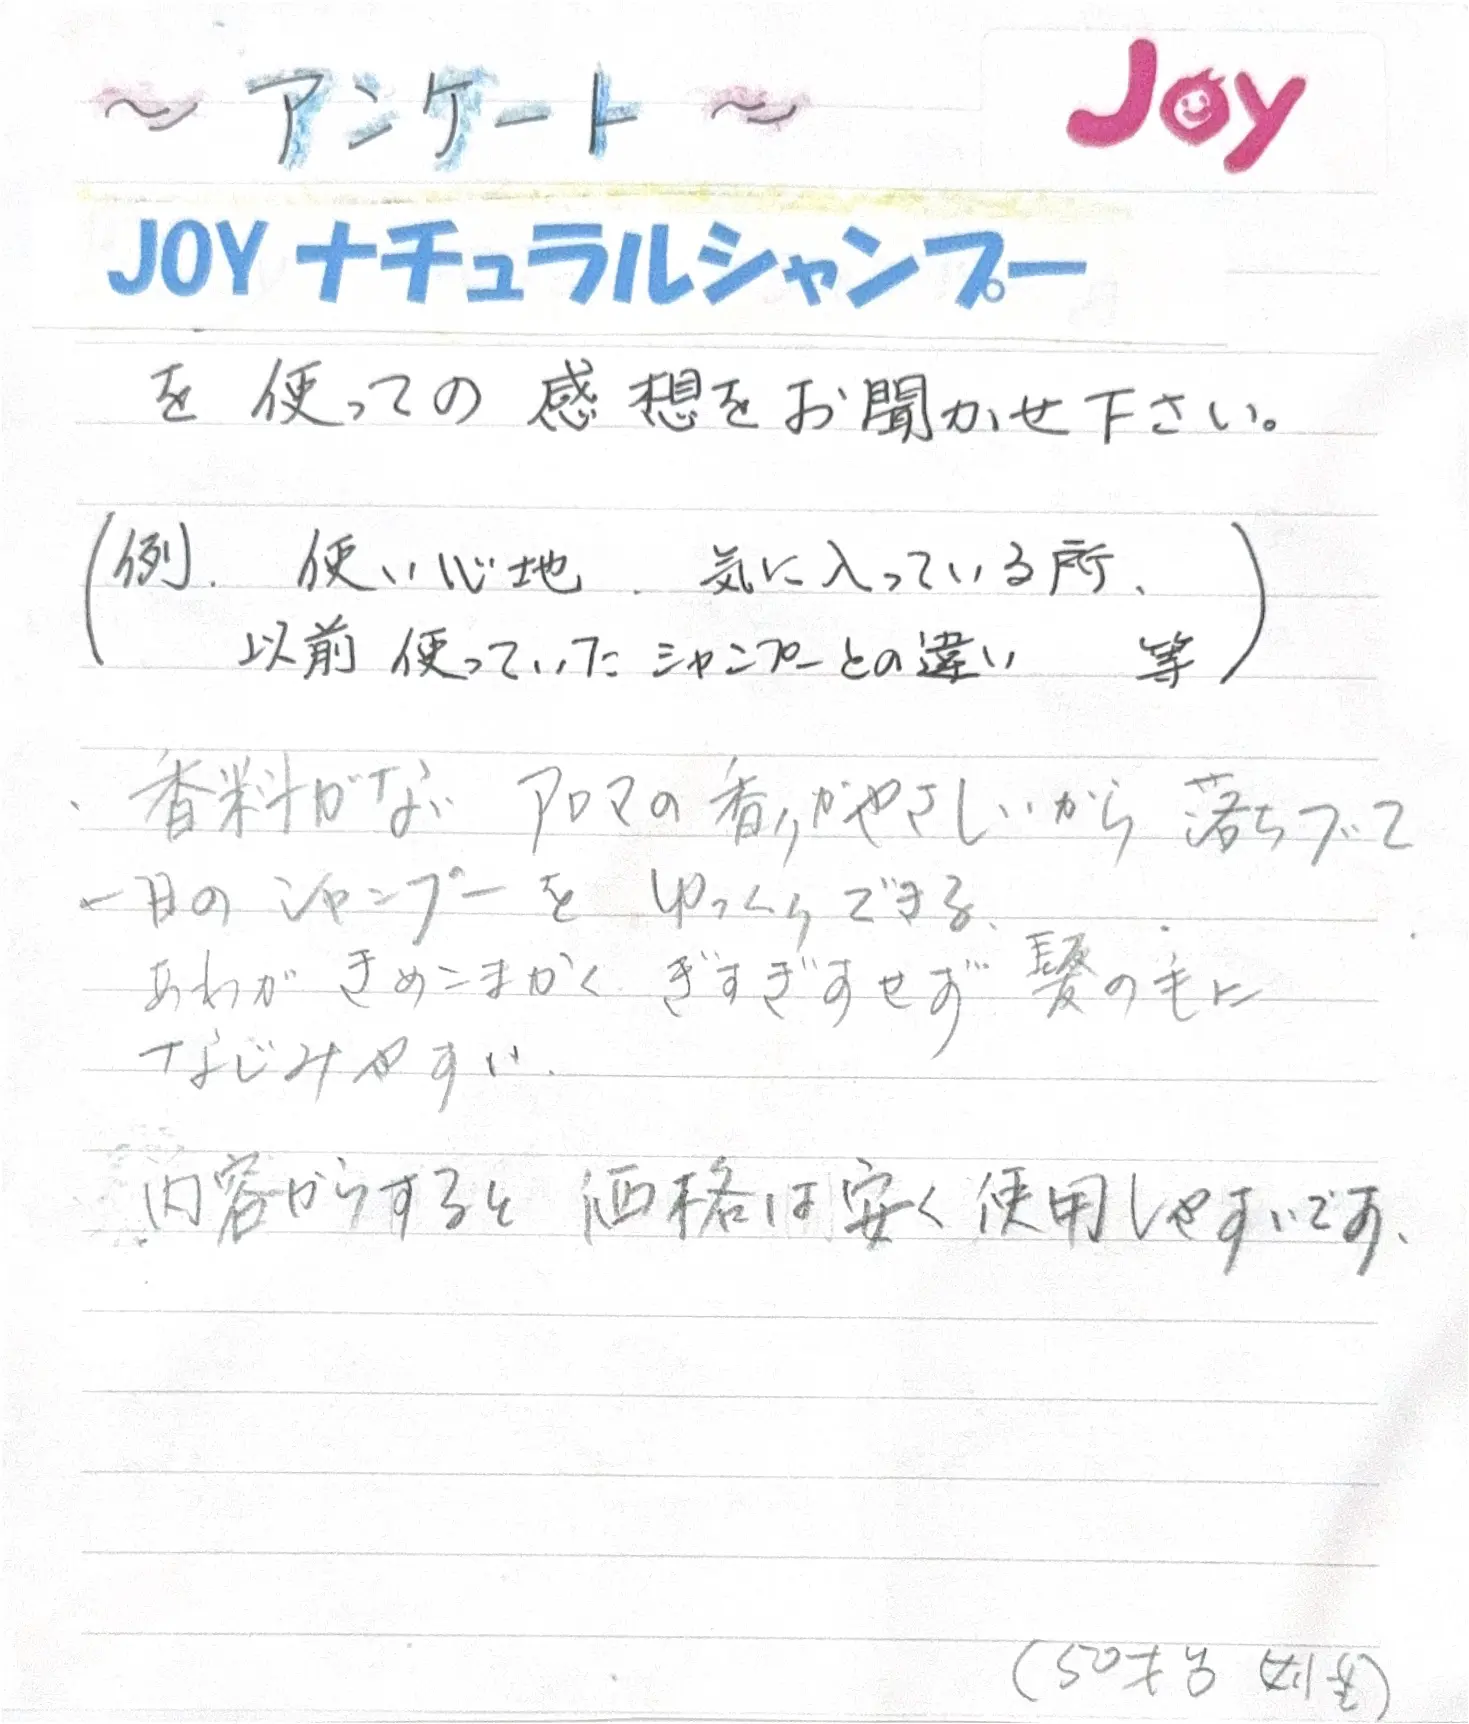 ～ アンケート ～
Joy
JOY ナチュラルシャンプー
を使っての感想をお聞かせ下さい。
(例. 使い心地. 気に入っている所、
以前使っていたシャンプーとの違い 等)
、香料がなく アロマの香りがやさしいから 落ちついて
一日の シャンプーを ゆっくりできる、
あわが きめこまかく ぎすぎすせず 髪の毛に
なじみやすい.
内容からすると 価格は安く使用しやすいです、